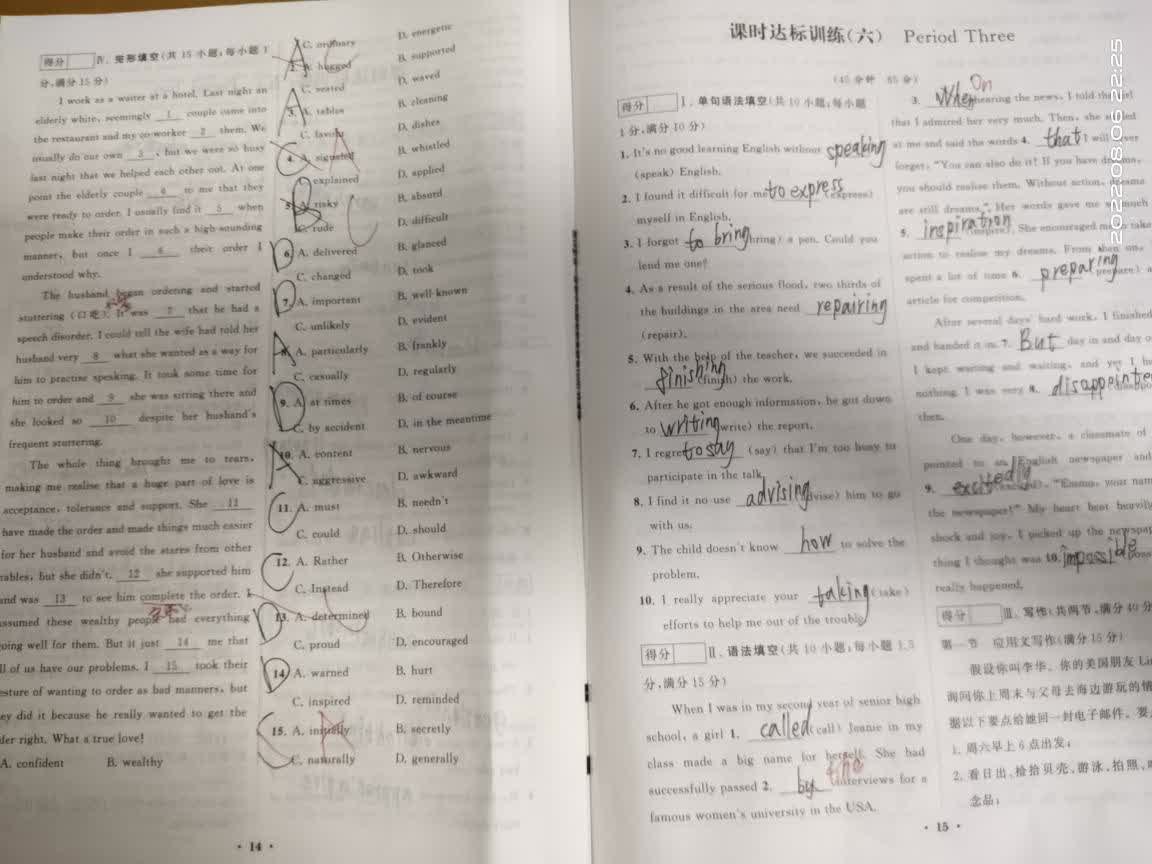 得分 Ⅳ. 完形填空(共 15 小题;每小题 1
分,满分 15 分)
I work as a waiter at a hotel. Last night an
elderly white, seemingly 1 couple came into
the restaurant and my co-worker 2 them. We
usually do our own 3 , but we were so busy
last night that we helped each other out. At one
point the elderly couple 4 to me that they
were ready to order. I usually find it 5 when
people make their order in such a high-sounding
manner, but once I 6 their order I
understood why.
The husband began ordering and started
stuttering (口吃). It was 7 that he had a
speech disorder. I could tell the wife had told her
husband very 8 what she wanted as a way for
him to practise speaking. It took some time for
him to order and 9 she was sitting there and
she looked so 10 despite her husband's
frequent stuttering.
The whole thing brought me to tears,
making me realise that a huge part of love is
acceptance, tolerance and support. She 11
have made the order and made things much easier
for her husband and avoid the stares from other
tables, but she didn't. 12 she supported him
and was 13 to see him complete the order. I
assumed these wealthy people had everything
going well for them. But it just 14 me that
all of us have our problems. I 15 took their
gesture of wanting to order as bad manners, but
they did it because he really wanted to get the
order right. What a true love!
A. confident B. wealthy
C. ordinary D. energetic
2. A. hugged B. supported
C. seated D. waved
3. A. tables B. cleaning
C. favors D. dishes
4. A. signaled B. whistled
C. explained D. applied
5. A. risky B. absurd
C. rude D. difficult
6. A. delivered B. glanced
C. changed D. took
7. A. important B. well-known
C. unlikely D. evident
8. A. particularly B. frankly
C. casually D. regularly
9. A. at times B. of course
C. by accident D. in the meantime
10. A. content B. nervous
C. aggressive D. awkward
11. A. must B. needn't
C. could D. should
12. A. Rather B. Otherwise
C. Instead D. Therefore
13. A. determined B. bound
C. proud D. encouraged
14. A. warned B. hurt
C. inspired D. reminded
15. A. initially B. secretly
C. naturally D. generally
· 14 ·
课时达标训练(六) Period Three
(45 分钟 65 分)
得分 Ⅰ. 单句语法填空(共 10 小题;每小题
1 分,满分 10 分)
1. It's no good learning English without speaking
(speak) English.
2. I found it difficult for me to express (express)
myself in English.
3. I forgot to bring (bring) a pen. Could you
lend me one?
4. As a result of the serious flood, two thirds of
the buildings in the area need repairing
(repair).
5. With the help of the teacher, we succeeded in
finishing (finish) the work.
6. After he got enough information, he got down
to writing (write) the report.
7. I regret to say (say) that I'm too busy to
participate in the talk.
8. I find it no use advising (advise) him to go
with us.
9. The child doesn't know how to solve the
problem.
10. I really appreciate your taking (take)
efforts to help me out of the trouble.
得分 Ⅱ. 语法填空(共 10 小题;每小题 1.5
分,满分 15 分)
When I was in my second year of senior high
school, a girl 1. called (call) Jeanie in my
class made a big name for herself. She had
successfully passed 2. by the interviews for a
famous women's university in the USA.
3. When On hearing the news, I told the girl
that I admired her very much. Then, she smiled
at me and said the words 4. that I will never
forget, "You can also do it! If you have dreams,
you should realise them. Without action, dreams
are still dreams." Her words gave me much
5. inspiration (inspire). She encouraged me to take
action to realise my dreams. From then on,
spent a lot of time 6. preparing (prepare) a
article for competition.
After several days' hard work, I finished
and handed it in. 7. But day in and day o
I kept waiting and waiting, and yet I h
nothing. I was very 8. disappointed
then.
One day, however, a classmate of
pointed to an English newspaper and
9. excitedly "Emma, your nam
the newspaper!" My heart beat heavily
shock and joy. I picked up the newspap
thing I thought was 10. impossible
really happened.
得分 Ⅲ. 写作(共两节,满分 40 分
第一节 应用文写作(满分 15 分)
假设你叫李华,你的美国朋友 Lin
询问你上周末与父母去海边游玩的情
据以下要点给她回一封电子邮件。要
1. 周六早上 6 点出发;
2. 看日出、捡拾贝壳、游泳、拍照、
念品;
· 15 ·
2020/08/06 22:25